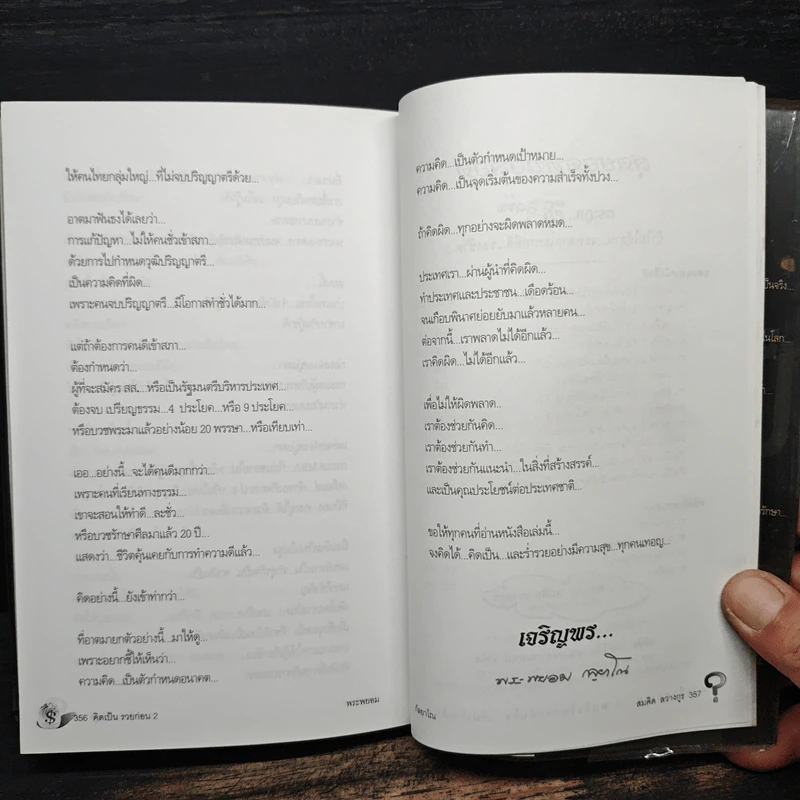 ให้คนไทยกลุ่มใหญ่...ที่ไม่จบปริญญาตรีด้วย...
อาตมาฟันธงได้เลยว่า...
การแก้ปัญหา...ไม่ให้คนชั่วเข้าสภา...
ด้วยการไปกำหนดวุฒิปริญญาตรี...
เป็นความคิดที่ผิด...
เพราะคนจบปริญญาตรี...มีโอกาสทำชั่วได้มาก...
แต่ถ้าต้องการคนดีเข้าสภา...
ต้องกำหนดว่า...
ผู้ที่จะสมัคร สส....หรือเป็นรัฐมนตรีบริหารประเทศ...
ต้องจบ เปรียญธรรม...4 ประโยค...หรือ 9 ประโยค...
หรือบวชพระมาแล้วอย่างน้อย 20 พรรษา...หรือเทียบเท่า...
เออ...อย่างนี้...จะได้คนดีมากกว่า...
เพราะคนที่เรียนทางธรรม...
เขาจะสอนให้ทำดี...ละชั่ว...
หรือบวชรักษาศีลมาแล้ว 20 ปี...
แสดงว่า...ชีวิตคุ้นเคยกับการทำความดีแล้ว...
คิดอย่างนี้...ยังเข้าท่ากว่า...
ที่อาตมายกตัวอย่างนี้...มาให้ดู...
เพราะอยากชี้ให้เห็นว่า...
ความคิด...เป็นตัวกำหนดอนาคต...
พระพยอม
356 คิดเป็น รวยก่อน 2
ความคิด...เป็นตัวกำหนดเป้าหมาย...
ความคิด...เป็นจุดเริ่มต้นของความสำเร็จทั้งปวง...
ถ้าคิดผิด...ทุกอย่างจะผิดพลาดหมด...
ประเทศเรา...ผ่านผู้นำที่คิดผิด...
ทำประเทศและประชาชน...เดือดร้อน...
จนเกือบพินาศย่อยยับมาแล้วหลายคน...
ต่อจากนี้...เราพลาดไม่ได้อีกแล้ว...
เราคิดผิด...ไม่ได้อีกแล้ว...
เพื่อไม่ให้ผิดพลาด...
เราต้องช่วยกันคิด...
เราต้องช่วยกันทำ...
เราต้องช่วยกันแนะนำ...ในสิ่งที่สร้างสรรค์...
และเป็นคุณประโยชน์ต่อประเทศชาติ...
ขอให้ทุกคนที่อ่านหนังสือเล่มนี้...
จงคิดได้...คิดเป็น...และร่ำรวยอย่างมีความสุข...ทุกคนเทอญ...
เจริญพร...
พระพยอม กลฺยาโณ
กัลยาโณ
สมคิด ลวางกูร 357
เป็นจริง...
ในโลก...
รักษา...